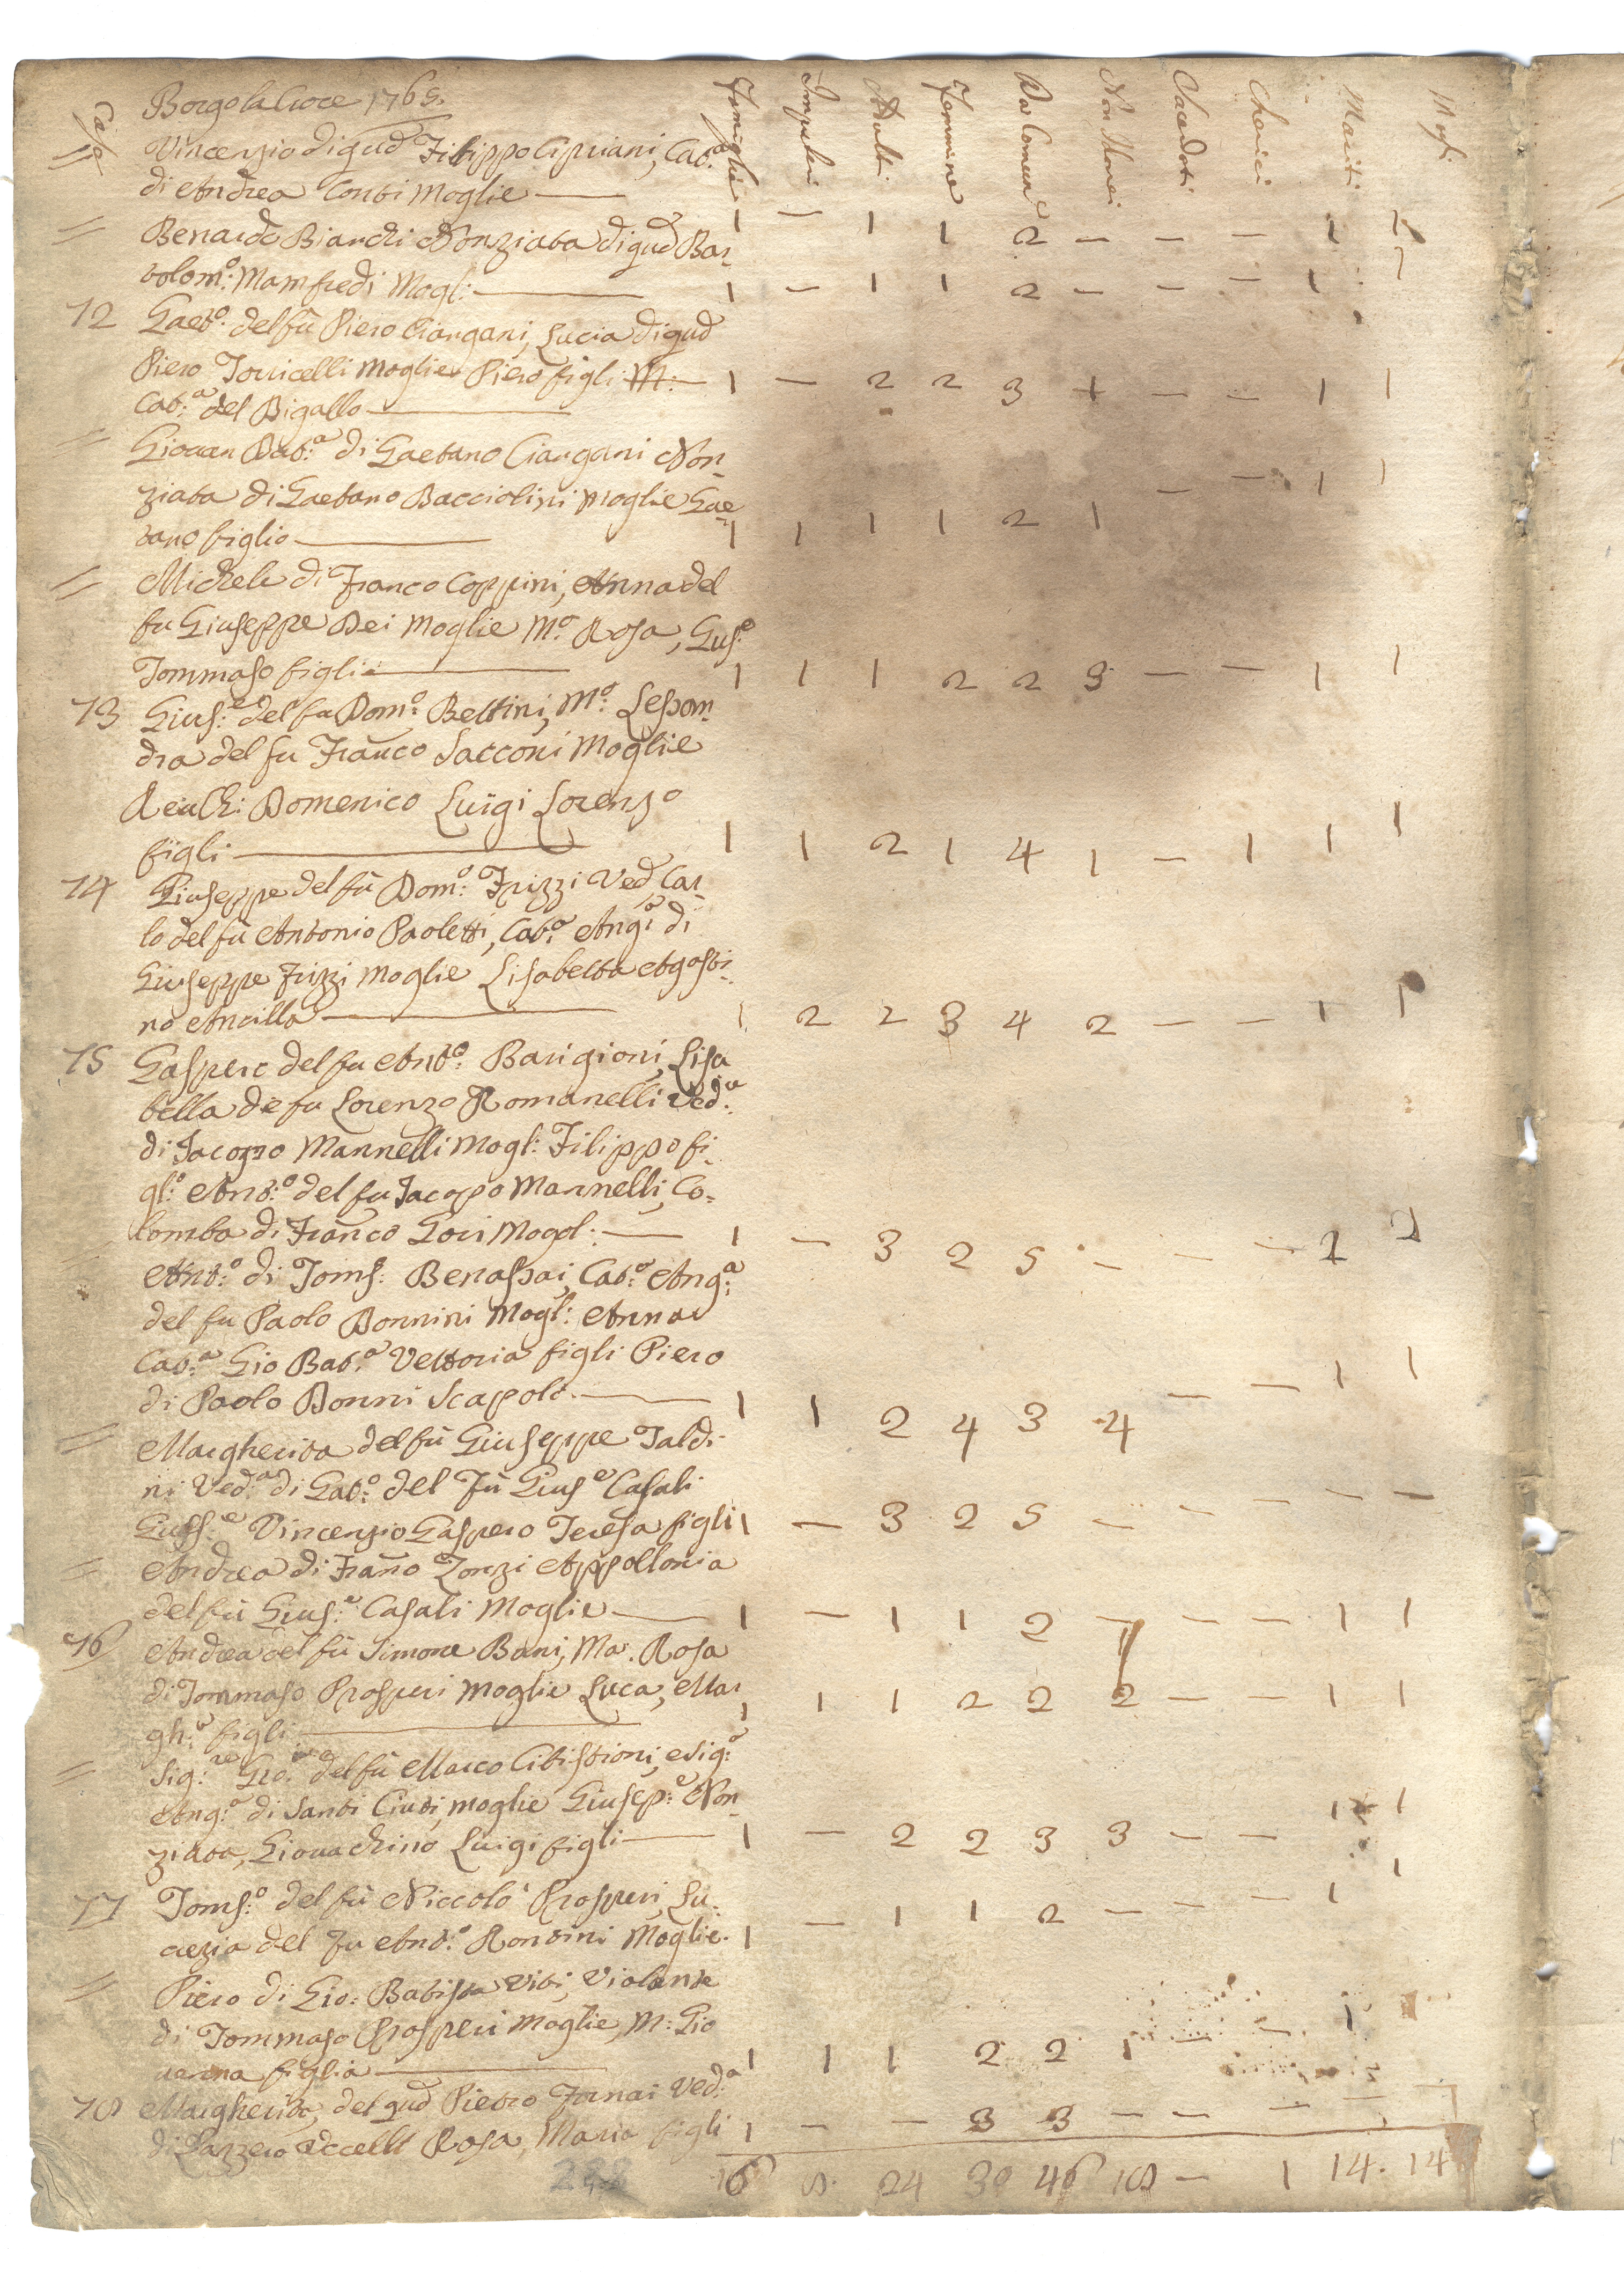 Borgo la Croce 1765.
Case Famiglie Impuberi Adulti Femmine Da Comun.e Non Com. Sacerdoti Chierici Mariti Mogli
= Vincenzio di qud Filippo Cipriani, Cat.a
di Andrea Conti Moglie — 1 — 1 1 2 — — — 1 1
= Benardo Bianchi Nonziata di qud Bar-
tolom.o Manfredi Mogl: — 1 — 1 1 2 — — — 1 1
72 Gaet.o del fu Piero Ciangani, Lucia di qud
Piero Torricelli Moglie Piero figli M: — 1 — 2 2 3 1 — — 1 1
Cat.a del Bigallo —
= Giovan Bat.a di Gaetano Ciangani Non-
ziata di Gaetano Bacciolini Moglie Gae-
tano figlio — 1 1 1 1 2 1 — — 1 1
= Michele di Franco Coppini, Anna del
fu Giuseppe Dei Moglie M.a Rosa, Gius.e
Tommaso figli — 1 1 1 2 2 3 — — 1 1
73 Gius.e del fu Dom.o Bettini, M.a Lesson-
dra del fu Franco Sacconi Moglie
Domenico Luigi Lorenzo
figli — 1 1 2 1 4 1 — 1 1 1
74 Giuseppe del fù Dom.o Frizzi Ved, Car-
lo del fù Antonio Paoletti, Cat.a Ang.a di
Giuseppe Frizzi Moglie Lisabetta Agosti-
no Ancilla — 1 2 2 3 4 2 — — 1 1
75 Gaspero del fu Ant.o Barigioni, Lisa
bella de fu Lorenzo Romanelli Ved.a
di Jacopo Mannelli Mogl: Filippo fi-
gl.o Ant.o del fu Jacopo Mannelli, Co-
lomba di Franco Gori Mogl: — 1 — 3 2 5 — — — 2 2
= Ant.o di Toms: Benassai, Cat.a Ang.a
del fu Paolo Bonnini Mogl: Anna
Cat.a Gio Bat.a Vettoria figli Piero
di Paolo Bonni Scapolo. — 1 1 2 4 3 4 — — 1 1
= Margherita del fù Giuseppe Taldi-
ni Ved.a di Gat.o del Fù Gius.e Casali
Giuss.e Vincenzio Gaspero Teresa figli 1 — 3 2 5 — — — — —
= Andrea di Frano Zonzi Appollonia
del fù Gius.e Casali Moglie — 1 — 1 1 2 — — — 1 1
76 Andrea del fù Simone Bani, Ma. Rosa
di Tommaso Prosperi Moglie Luca, Mar
gh.a figli — 1 1 1 2 2 2 — — 1 1
= Sig.re Gio. del fù Marco Citistioni, e Sig.a
Ang.a di Santi Ciuti, moglie Giusep.e Non-
ziata, Giouachino Luigi figli — 1 — 2 2 3 3 — — 1 1
77 Toms.o del fù Niccolò Prosperi, Lu-
crezia del Fu Ant.o Rontini Moglie. 1 — 1 1 2 — — — 1 1
= Piero di Gio. Batista Viti, Violante
di Tommaso Prosperi Moglie, M: Gio
uanna figlia — 1 1 1 2 2 1 — — 1 1
78 Margherita, del qud Pietro Fornai Ved.a
di Lazzero Uccelli Rosa, Maria figli 1 — — 3 3 — — — —
16 8. 24 30 46 18 — 1 14. 14
288